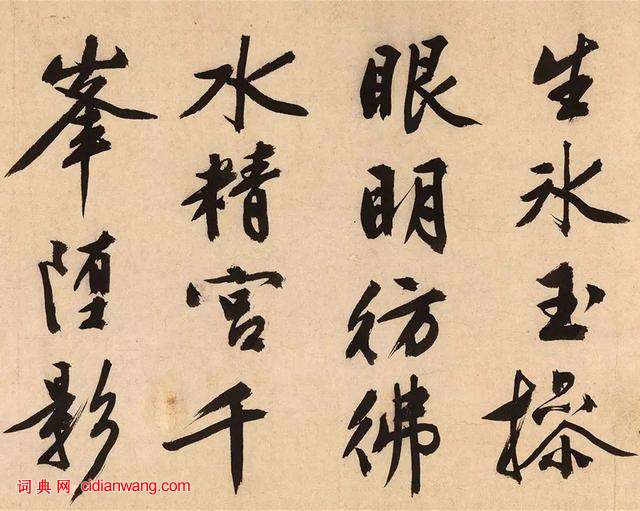 生氷玉操
眼明彷彿
水精宮千
峯墮影
词典网 cidianwang.com